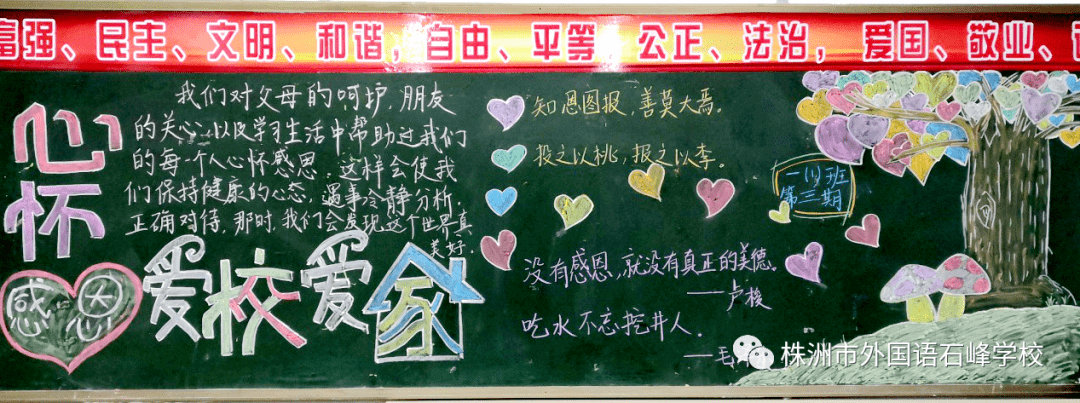 富强、民主、文明、和谐，自由、平等 公正、法治，爱国、敬业、
心怀
感恩
我们对父母的呵护，朋友
的关心，以及学习生活中帮助过我们
的每一个人心怀感恩，这样会使我
们保持健康的心态，遇事冷静分析，
正确对待，那时，我们会发现这个世界真
美好。
爱校爱家
知恩图报，善莫大焉。
投之以桃，报之以李。
一(1)班
第三期
没有感恩，就没有真正的美德。
——卢梭
吃水不忘挖井人。
——毛
株洲市外国语石峰学校